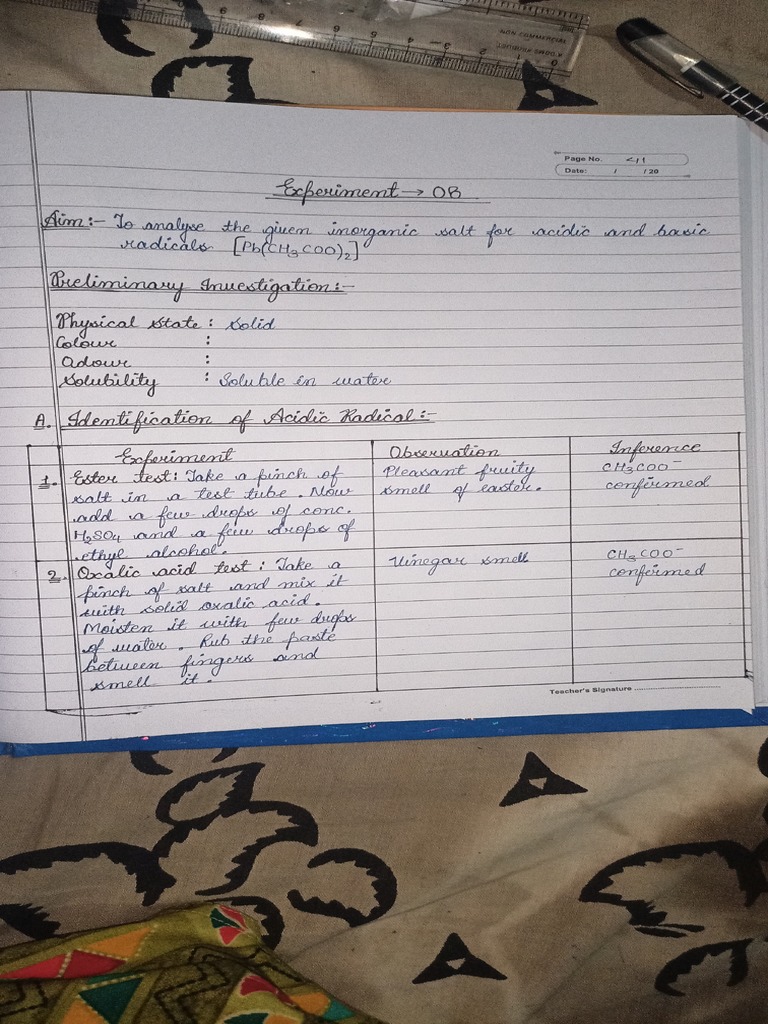 NON COMMERCIAL
0 1 2 3 4 5 6 7 8 9
Page No.
Date: / /20
Experiment → 08
Aim:- To analyse the given inorganic salt for acidic and basic
radicals [Pb(CH3COO)2]
Preliminary Investigation:-
Physical state : solid
Colour :
Odour :
Solubility : Soluble in water
A. Identification of Acidic Radical:-
Experiment Observation Inference
1. Ester test: Take a pinch of
salt in a test tube. Now
add a few drops of conc.
H2SO4 and a few drops of
ethyl alcohol.
Pleasant fruity
smell of easter.
CH3COO-
confirmed
2. Oxalic acid test: Take a
pinch of salt and mix it
with solid oxalic acid.
Moisten it with few drops
of water. Rub the paste
between fingers and
smell it.
Vinegar smell
CH3COO-
confirmed
Teacher's Signature